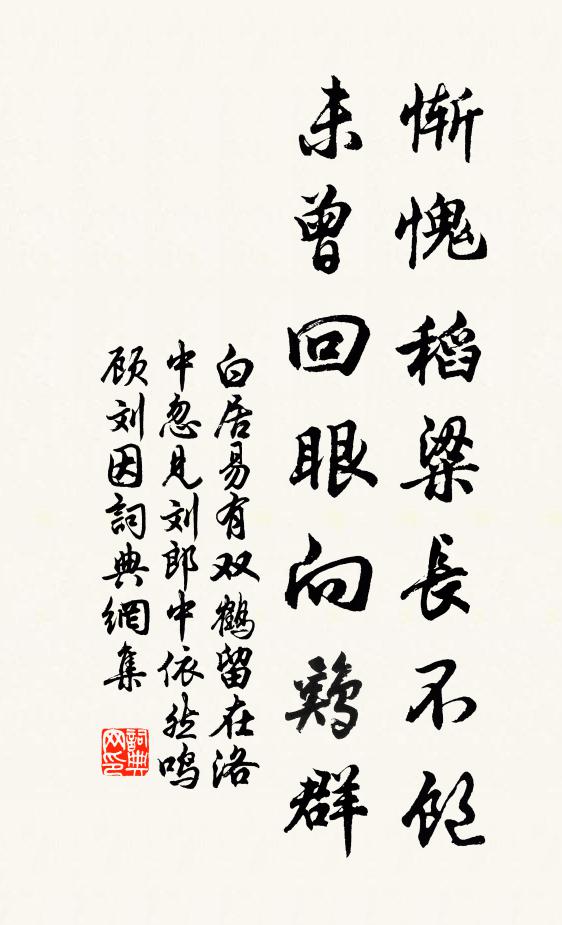 慚愧稻粱長不飽
未曾回眼向鷄群
白居易有双鶴留在洛
中忽见刘郎中依然鸣
顾刘因詞典網集
詞典
网印